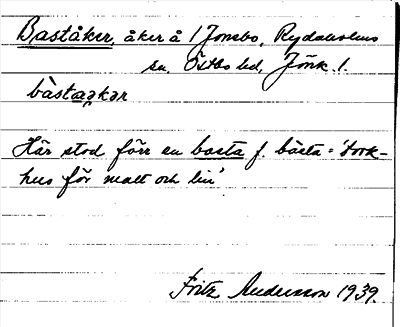 Baståker, åker å 1 Jonsbo, Rydaholms
sn. Östbo hd, Jönk. l.
bàstaɑ̨kər
Här stod förr en basta f. bàsta = 'tork-
hus för malt och lin'.
Fritz Andersson 1939.